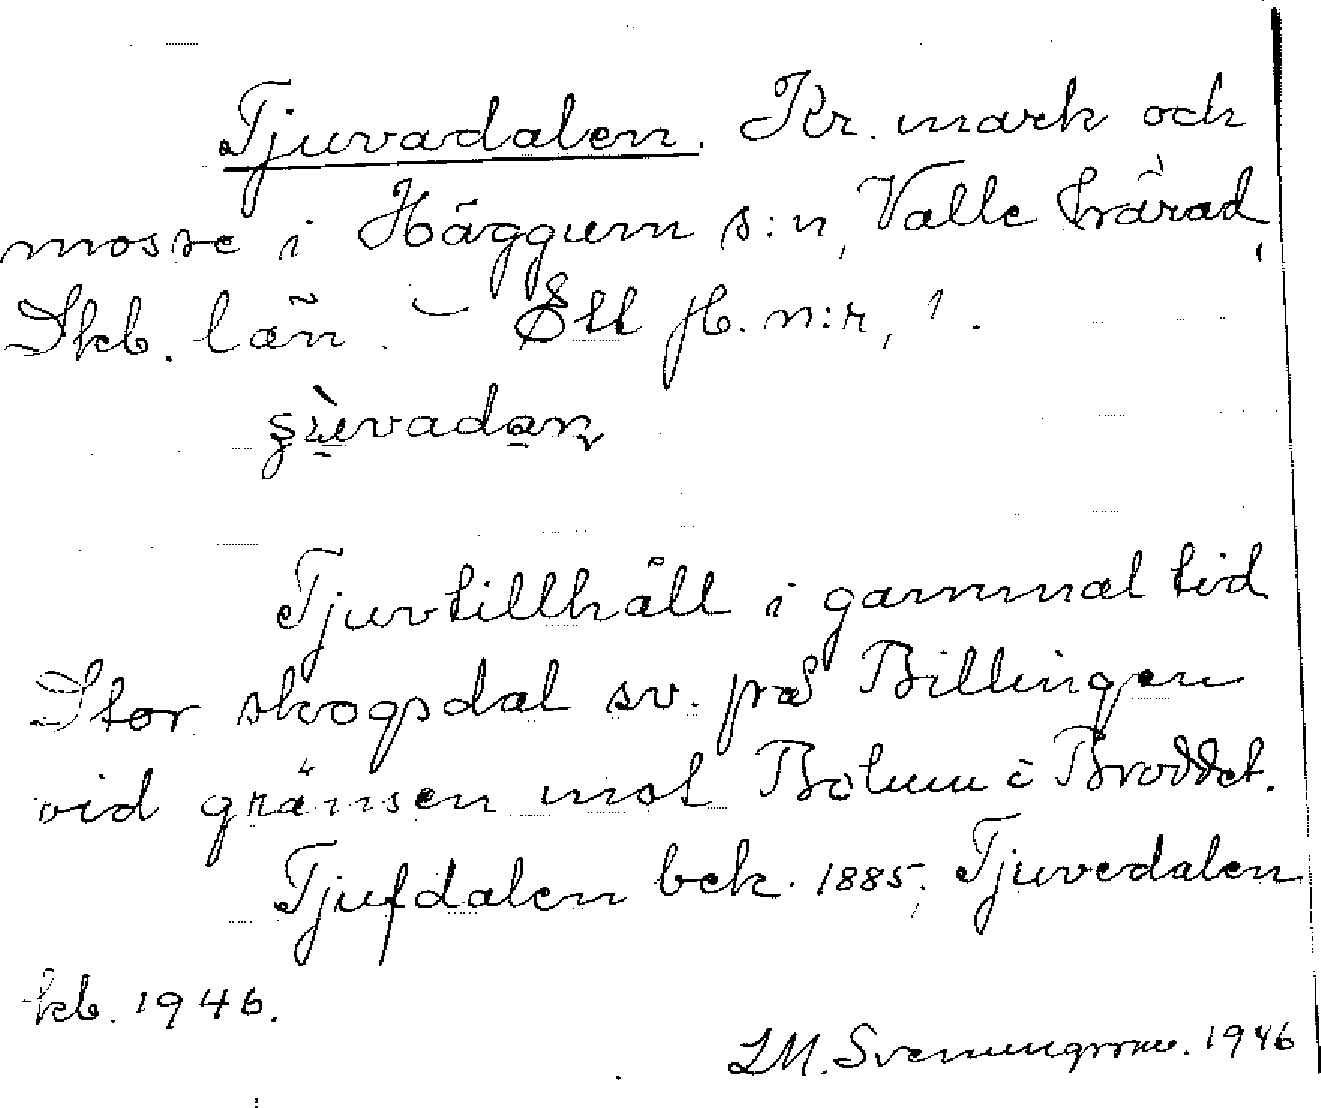 Tjuvadalen. Kr. mark och
mosse i Häggum s:n, Valle härad,
Skb. län. – Ett jb. n:r, 1.
Tjuvtillhåll i gammal tid
Stor skogsdal sv. på Billingen
vid gränsen mot Bolum i Broddet.
Tjufdalen bek. 1885, Tjuvedalen
kb. 1946.
LM. Svenungsson. 1946